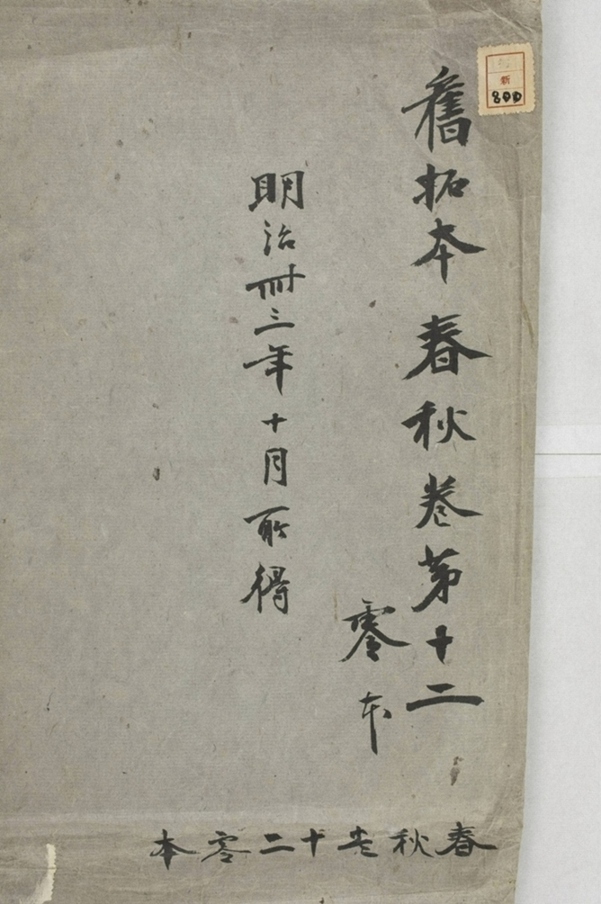 新
800
舊拓本春秋卷第十二
零本
明治卌三年十月所得
春秋卷十二零本